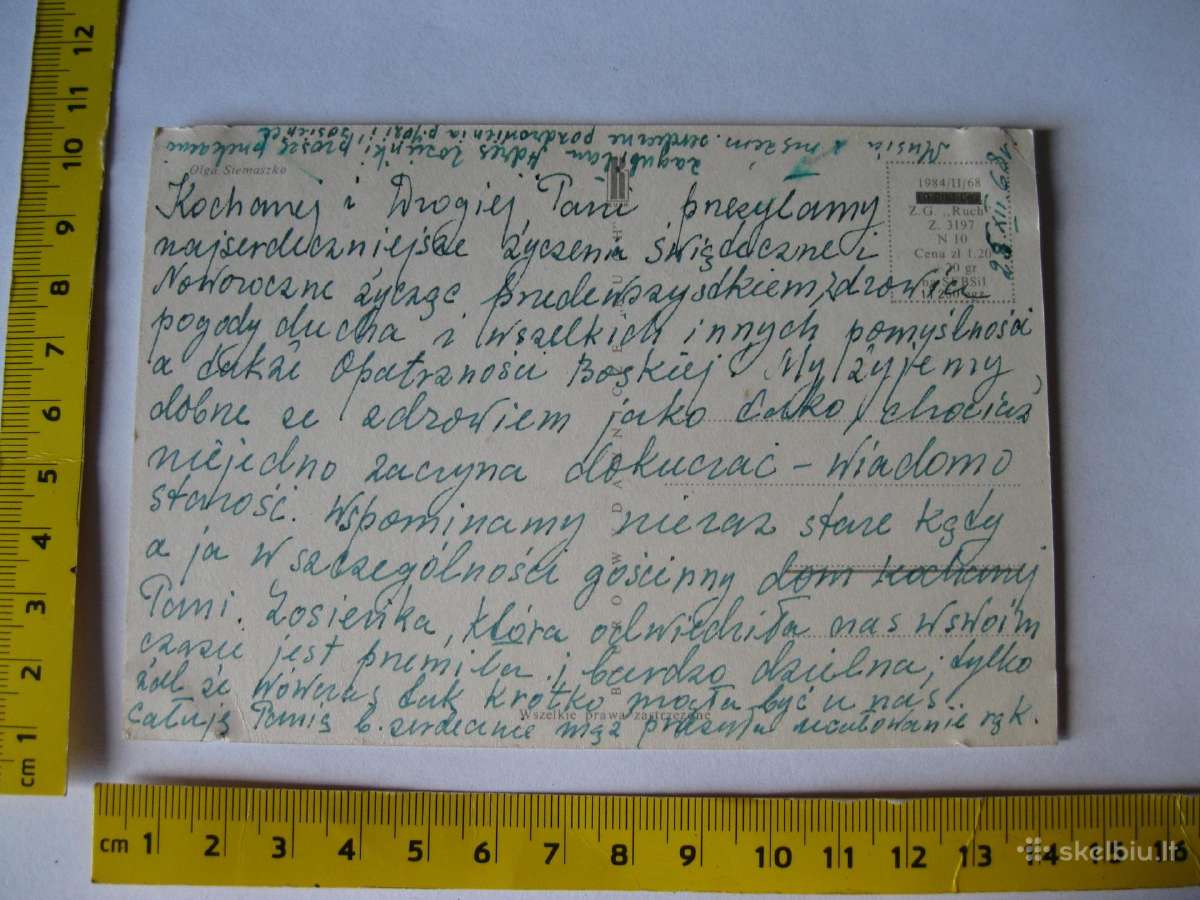 Musia z mężem.
zagubiłam Adres Zosieńki, proszę przekazać
serdeczne pozdrowienia
Olga Siemaszko
1984/II/68
Z.G. „Ruch"
Z. 3197
N 10
Cena zł 1.20
28 XII 68 r.
Kochanej i Drogiej Pani przesyłamy
najserdeczniejsze życzenia świąteczne i
Noworoczne życząc przedewszystkiem, zdrowia
pogody ducha i wszelkich innych pomyślności
a także Opatrzności Boskiej. My żyjemy
dobrze ze zdrowiem jako tako, chociaż
niejedno zaczyna dokuczać – wiadomo
starość. Wspominamy nieraz stare kąty
a ja w szczególności gościnny dom kochanej
Pani. Zosieńka, która odwiedziła nas wswoim
czasie jest przemiła i bardzo dzielna, tylko
żal że wówczas tak krótko mogła być u nas.
Całuję Panią b. serdecznie mąż przesyła ucałowanie rąk.
Wszelkie prawa zastrzeżone
cm 1 2 3 4 5 6 7 8 9 10 11 12
cm 1 2 3 4 5 6 7 8 9 10 11 12 13 14 15 16
skelbiu.lt